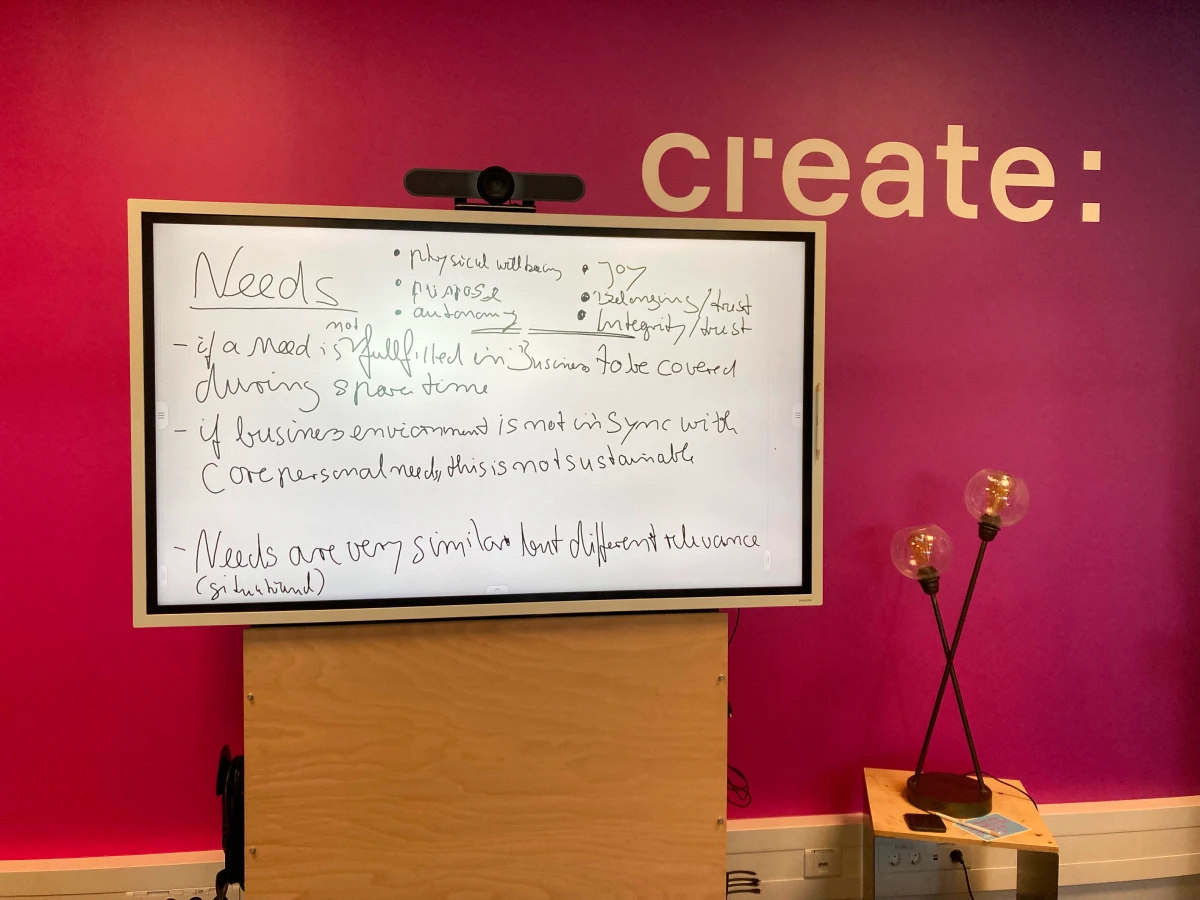 create:
Needs
• physical wellbeing
• purpose
• autonomy
• Joy
• Belonging/trust
• Integrity/trust
- if a need is not fullfilled in Business to be covered
during spare time
- if business environment is not in sync with
core personal needs, this is not sustainable
- Needs are very similar but different relevance
(situational)